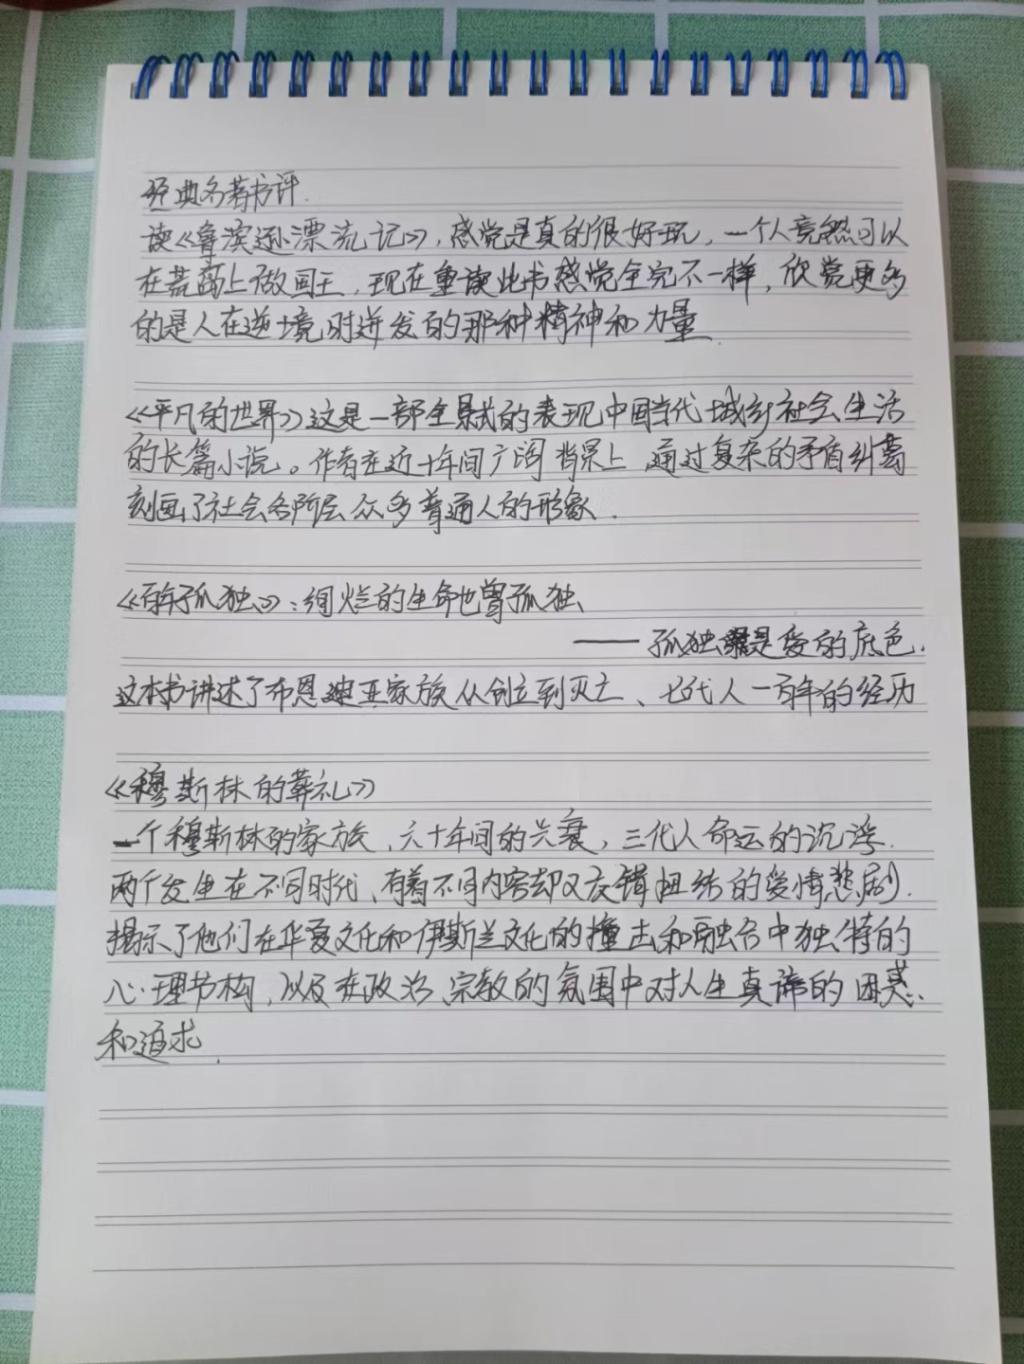 经典名著书评.
读《鲁滨逊漂流记》，感觉是真的很好玩，一个人竟然可以
在荒岛上做国王，现在重读此书感觉全完不一样，欣赏更多
的是人在逆境时迸发的那种精神和力量
《平凡的世界》这是一部全景式的表现中国当代城乡社会生活
的长篇小说。作者在近十年间广阔背景上，通过复杂的矛盾纠葛
刻画了社会各阶层众多普通人的形象.
《百年孤独》：绚烂的生命也曾孤独
——孤独是爱的底色.
这本书讲述了布恩迪亚家族从创立到灭亡、七代人一百年的经历
《穆斯林的葬礼》
一个穆斯林的家族，六十年间的兴衰，三代人命运的沉浮.
两个发生在不同时代、有着不同内容却又交错扭结的爱情悲剧.
揭示了他们在华夏文化和伊斯兰文化的撞击和融合中独特的
心理节构，以及在政治、宗教的氛围中对人生真谛的困惑
和追求.